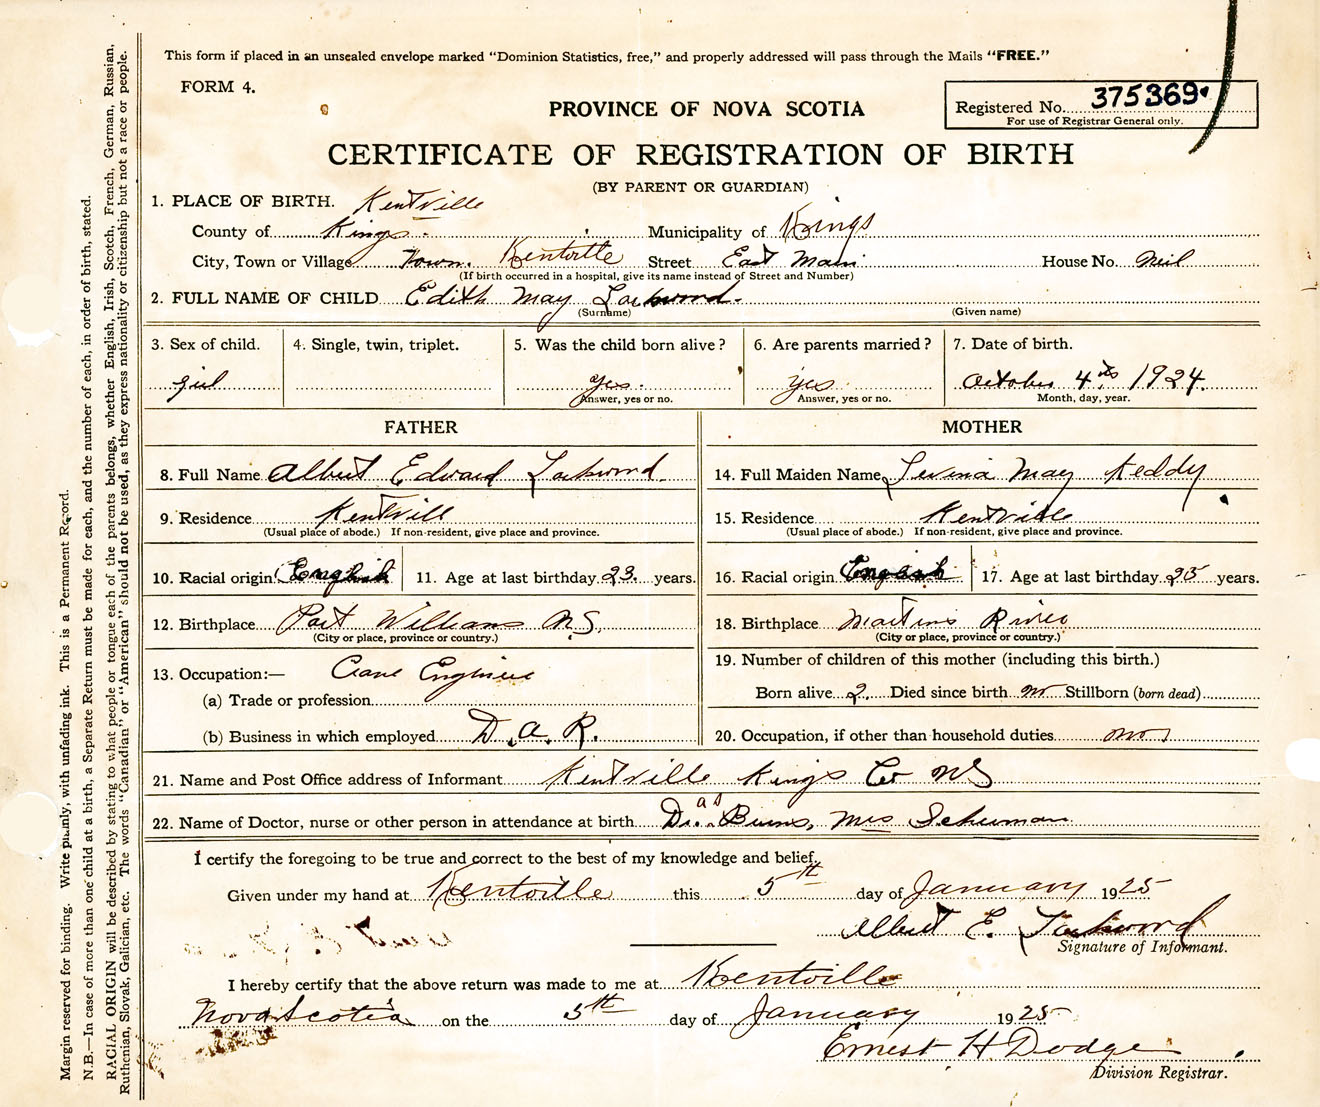 This form if placed in an unsealed envelope marked "Dominion Statistics, free," and properly addressed will pass through the Mails "FREE."
FORM 4.
PROVINCE OF NOVA SCOTIA
Registered No. 375369
For use of Registrar General only.
CERTIFICATE OF REGISTRATION OF BIRTH
(BY PARENT OR GUARDIAN)
1. PLACE OF BIRTH. Kentville
County of Kings. Municipality of Kings
City, Town or Village Town. Kentville Street East Main House No. Neil
(If birth occurred in a hospital, give its name instead of Street and Number)
2. FULL NAME OF CHILD Edith May Lockwood.
(Surname) (Given name)
3. Sex of child. 4. Single, twin, triplet. 5. Was the child born alive? 6. Are parents married? 7. Date of birth.
girl yes. yes October 4th 1924.
Answer, yes or no. Answer, yes or no. Month, day, year.
FATHER MOTHER
8. Full Name Albert Edward Lockwood. 14. Full Maiden Name May Keddy
9. Residence Kentvill 15. Residence Kentville
(Usual place of abode.) If non-resident, give place and province. (Usual place of abode.) If non-resident, give place and province.
10. Racial origin English 11. Age at last birthday 23. years. 16. Racial origin English 17. Age at last birthday 25 years.
12. Birthplace Port Williams N.S. 18. Birthplace Martins River
(City or place, province or country.) (City or place, province or country.)
13. Occupation:— Crane Engineer 19. Number of children of this mother (including this birth.)
(a) Trade or profession Born alive 2. Died since birth no Stillborn (born dead)
(b) Business in which employed D. A. R. 20. Occupation, if other than household duties no
21. Name and Post Office address of Informant Kentville Kings Co NS
22. Name of Doctor, nurse or other person in attendance at birth Dr. Burns, Mrs Schurman
I certify the foregoing to be true and correct to the best of my knowledge and belief.
Given under my hand at Kentville this 5th day of January 1925
Albert E. Lockwood
Signature of Informant.
I hereby certify that the above return was made to me at Kentville
Nova Scotia on the 5th day of January 1925
Ernest H Dodge
Division Registrar.
Margin reserved for binding. Write plainly, with unfading ink. This is a Permanent Record.
N.B.—In case of more than one child at a birth, a Separate Return must be made for each, and the number of each, in order of birth, stated.
RACIAL ORIGIN will be described by stating to what people or tongue each of the parents belongs, whether English, Irish, Scotch, French, German, Russian,
Ruthenian, Slovak, Galician, etc. The words "Canadian" or "American" should not be used, as they express nationality or citizenship but not a race or people.